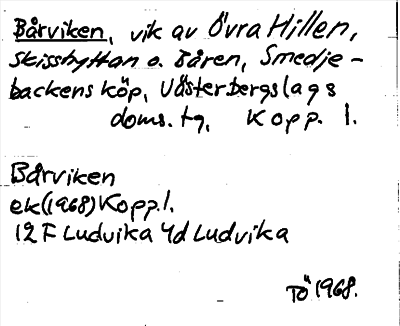 Bårviken, vik av Övra Hillen,
Skisshyttan o. Båren, Smedje-
backens köp, Västerbergslags
doms. tg, Kopp. l.
Bårviken
ek(1968) Kopp. l.
12 F Ludvika 4d Ludvika
TÖ 1968.